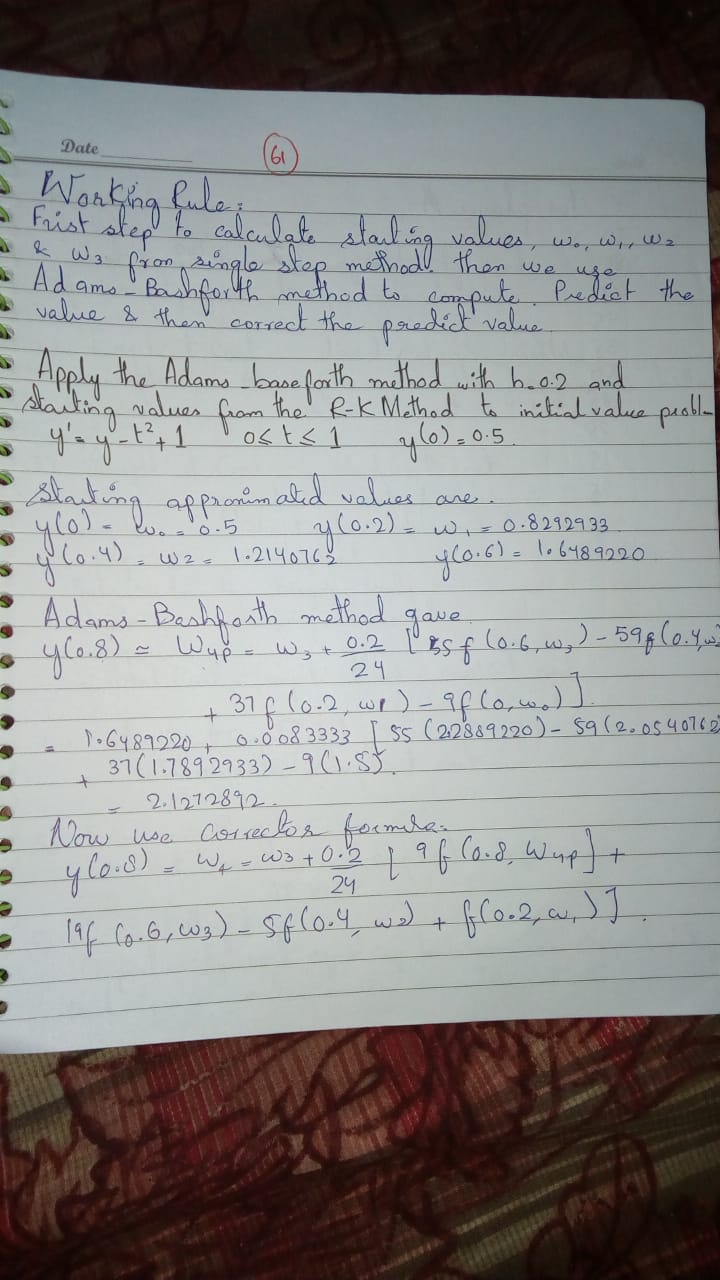 Date
61
Working Rule:
Frist step to calculate starting values, w₀, w₁, w₂
& w₃ from single step method. then we use
Adams-Bashforth method to compute. Predict the
value & then correct the predict value.
Apply the Adams-baseforth method with h=0.2 and
starting values from the R-K Method to initial value probl-
y' = y - t² + 1   0≤t≤1   y(0) = 0.5.
Starting approximated values are.
y(0) = w₀ = 0.5   y(0.2) = w₁ = 0.8292933
y(0.4) = w₂ = 1.2140762   y(0.6) = 1.6489220
Adams-Bashforth method gave
y(0.8) ≃ W₄p = w₃ + 0.2/24 [55f(0.6, w₃) - 59f(0.4, w₂
+ 37f(0.2, w₁) - 9f(0, w₀)]
= 1.6489220 + 0.0083333 [55(2.2889220) - 59(2.0540762
+ 37(1.7892933) - 9(1.5).
= 2.1272892.
Now use corrector formula.
y(0.8) = w₄ = w₃ + 0.2/24 [9f(0.8, W₄p] +
19f(0.6, w₃) - 5f(0.4, w₂) + f(0.2, w₁)].